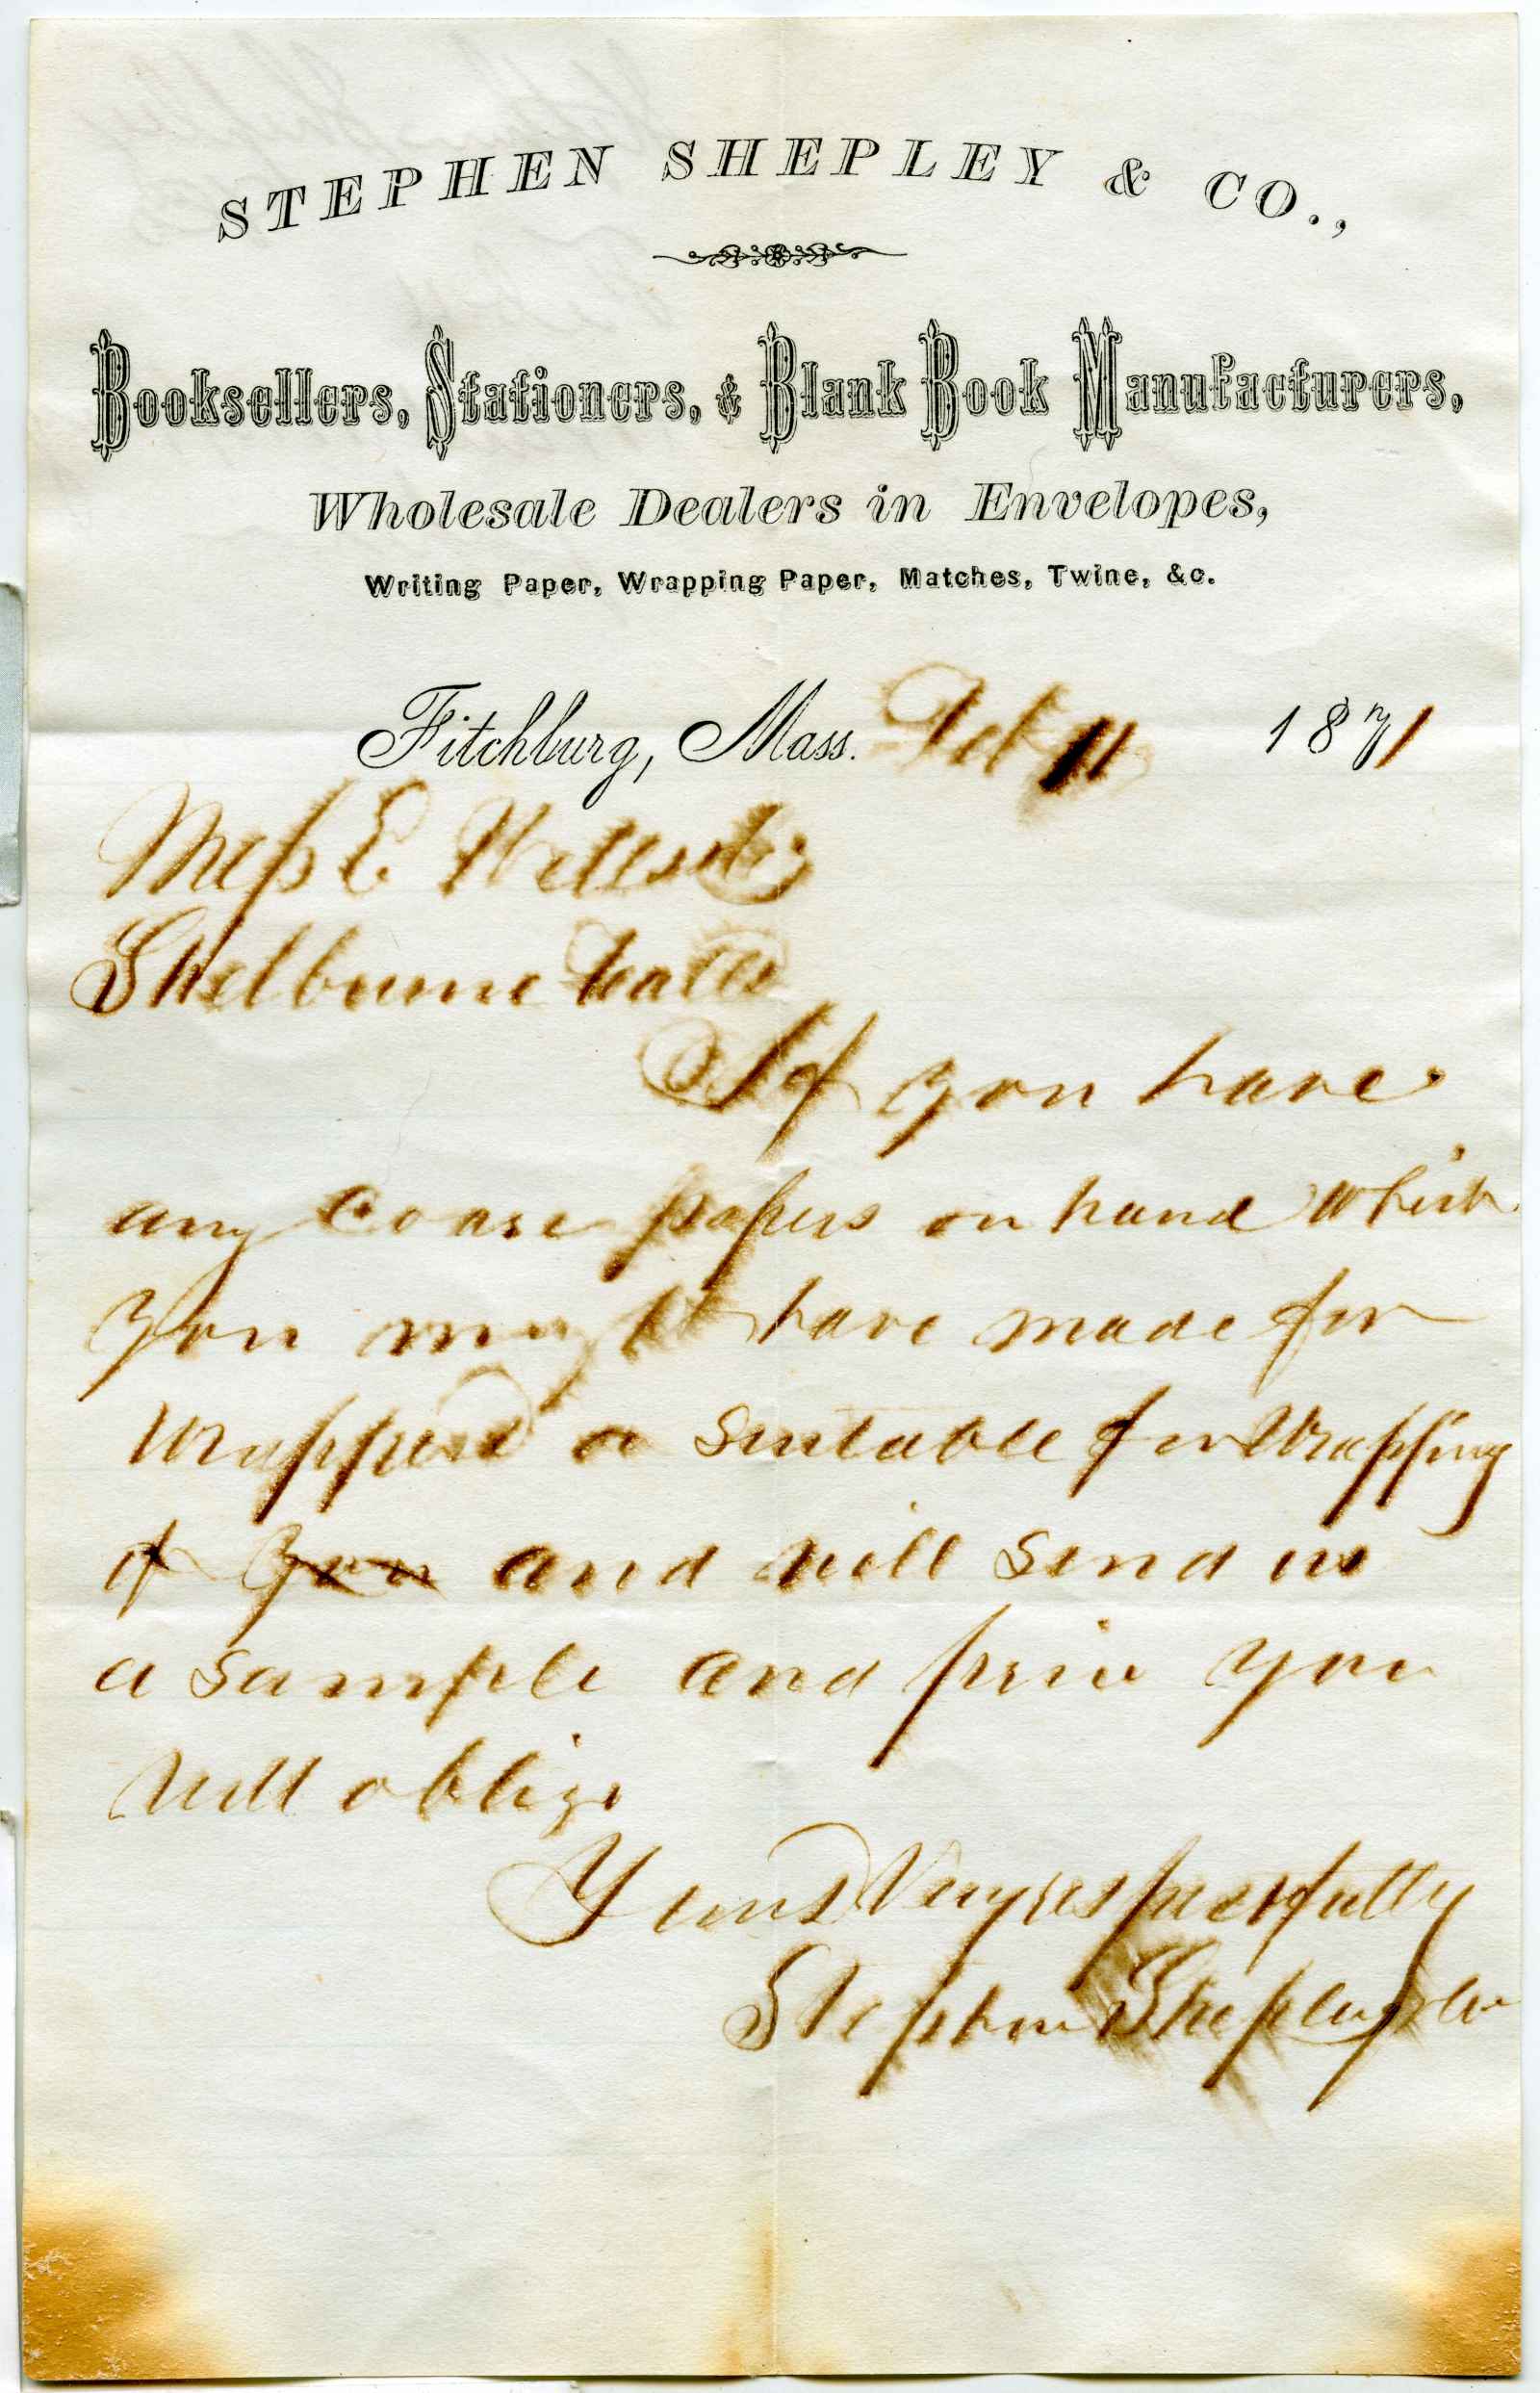 STEPHEN SHEPLEY & CO.,
Booksellers, Stationers, & Blank Book Manufacturers,
Wholesale Dealers in Envelopes,
Writing Paper, Wrapping Paper, Matches, Twine, &c.
Fitchburg, Mass. Feb 11 1871
Mess E Wells
Shelburne Falls
If you have
any coarse papers on hand which
you might have made for
or suitable for Wrapping
if you and will send us
a sample and price you
will oblige
Yours Very respectfully
Stephen Shepley & Co